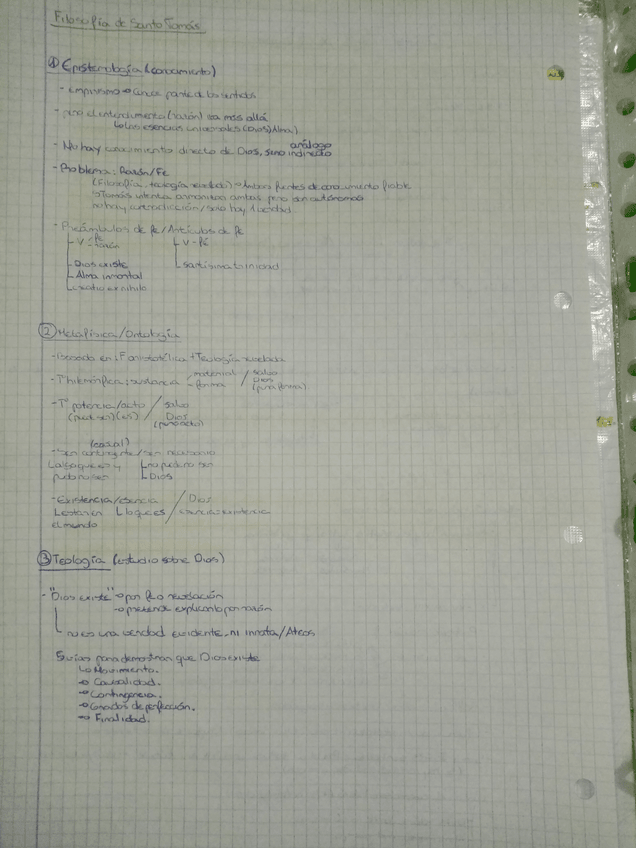 Filosofía de Santo Tomás
① Epistemología (conocimiento)
- Empirismo → Conoc. parte de los sentidos
- pero el entendimiento (razón) va más allá
↳ las esencias universales (Dios, Alma)
- No hay conocimiento directo de Dios, sino indirecto
análogo
- Problema: Razón/Fe
(Filosofía, teología revelada) → Ambas fuentes de conocimiento fiable
→ Tomás intenta armonizar ambas pero son autónomas
no hay contradicción / solo hay 1 verdad
- Preámbulos de fe / Artículos de fe
V - Fe V - Fe
razón
- Dios existe - santísima trinidad
- Alma inmortal
- creatio ex nihilo
② Metafísica / Ontología
- Basada en: F aristotélica + Teología revelada
- Tª hilemórfica: sustancia - material / salvo
- forma Dios
(pura forma)
- Tª potencia/acto / salvo
(puede ser) (es) Dios
(puro acto)
(casual)
- Ser contingente / ser necesario
Lo que es y no puede no ser
puede no ser Dios
- Existencia/esencia / Dios
estar en lo que es / esencia = existencia
el mundo
③ Teología (estudio sobre Dios)
- "Dios existe" → por fe o revelación
→ pretende explicarlo por razón
no es una verdad evidente, ni innata / Ateos
5 vías para demostrar que Dios existe
↳ Movimiento.
→ Causalidad.
→ Contingencia.
→ Grados de perfección.
→ Finalidad.